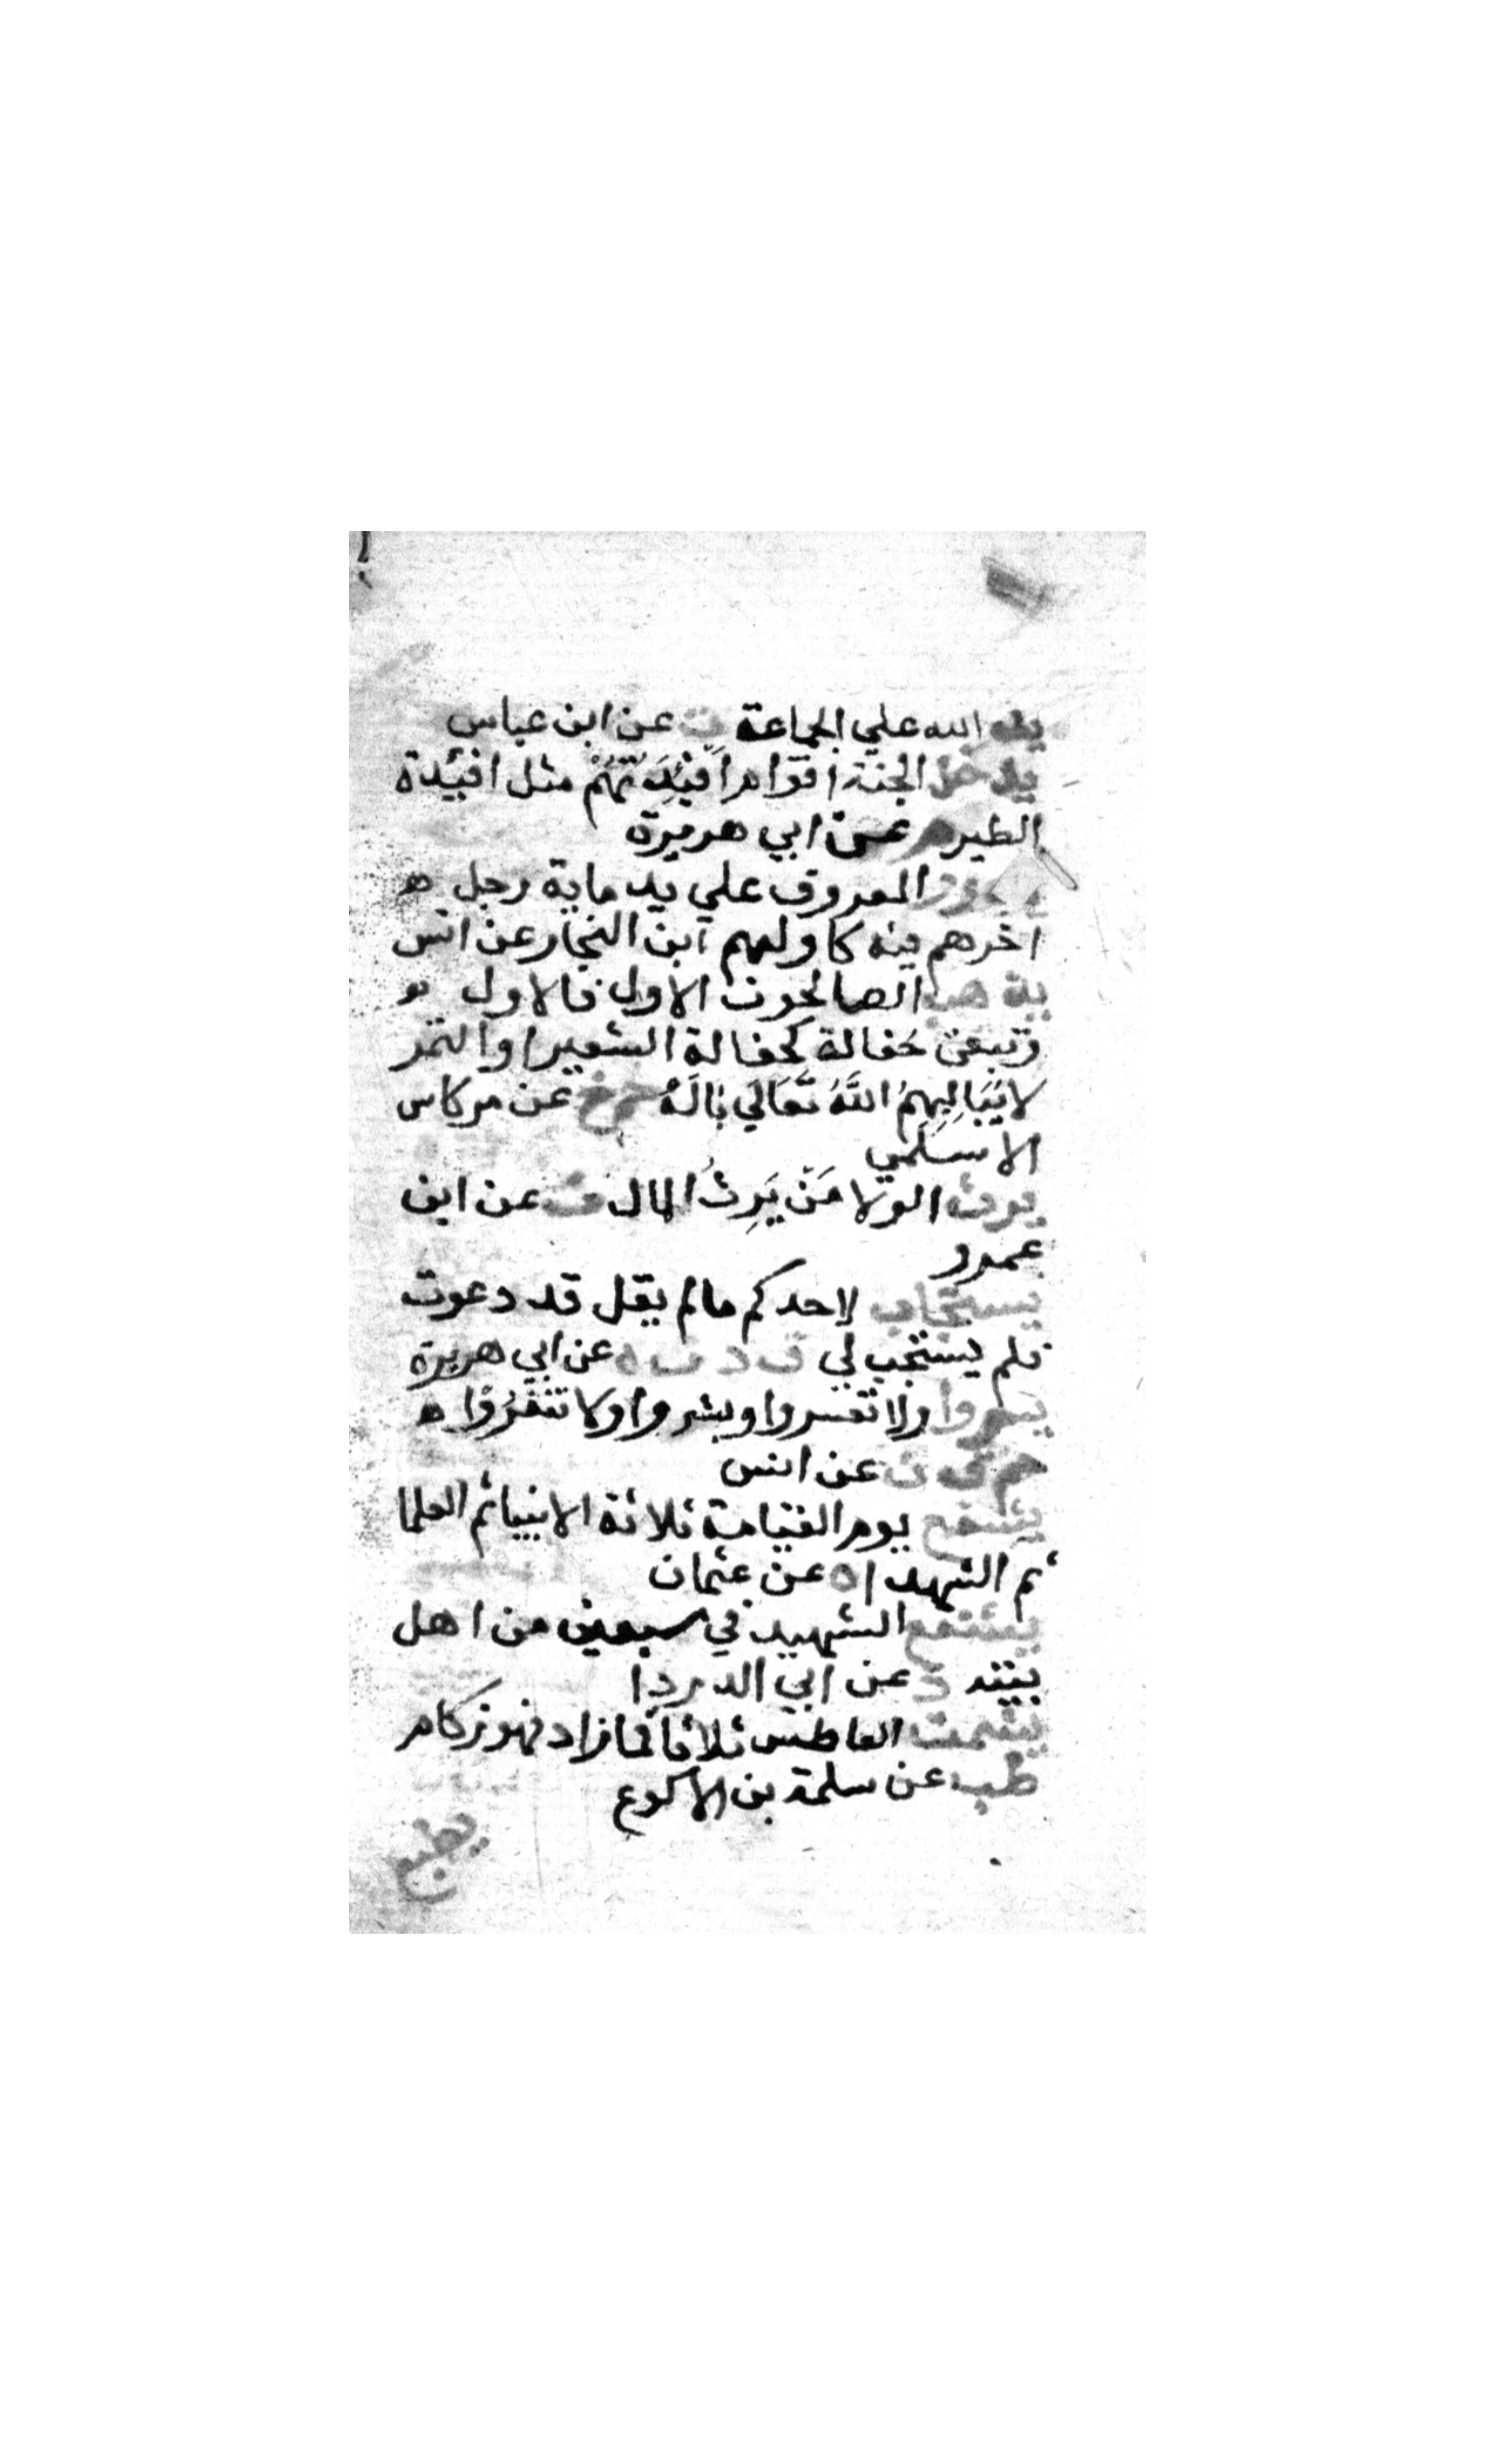 يد الله علي الجماعة ت عن ابن عباس
يدخل الجنة اقوام اَفْئِدَتُهُمْ مثل افئيدة
الطير حم عن ابي هريرة
المعروف علي يد ماية رجل ه
اخرهم فيه كاولهم ابن النجار عن انس
يذهب الصالحون الاول فالاول
وتبقى حُفالة كحفالة الشعير او التمر
لا يُبَالِيهِمُ اللَّهُ تَعَالَي بَالَةً حم خ عن مرداس
الاسلمي
يرث الولا مَنْ يَرِثُ المال ت عن ابن
عمرو
يستجاب لاحدكم مالم يقل قد دعوت
فلم يستجب لي ق د ت ه عن ابي هريرة
يسروا ولا تعسروا وبشروا ولا تنفرُوا ه
حم ق ن عن انس
يشفع يوم القيامة ثلاثة الانبيا ثم العلما
ثم الشهدا ه عن عثمان
يشفع الشهيد في سبعين من اهل
بيته د عن ابي الدردا
يشمت العاطس ثلاثا فما زاد فهو زكام
طب عن سلمة بن الاكوع
يطبع